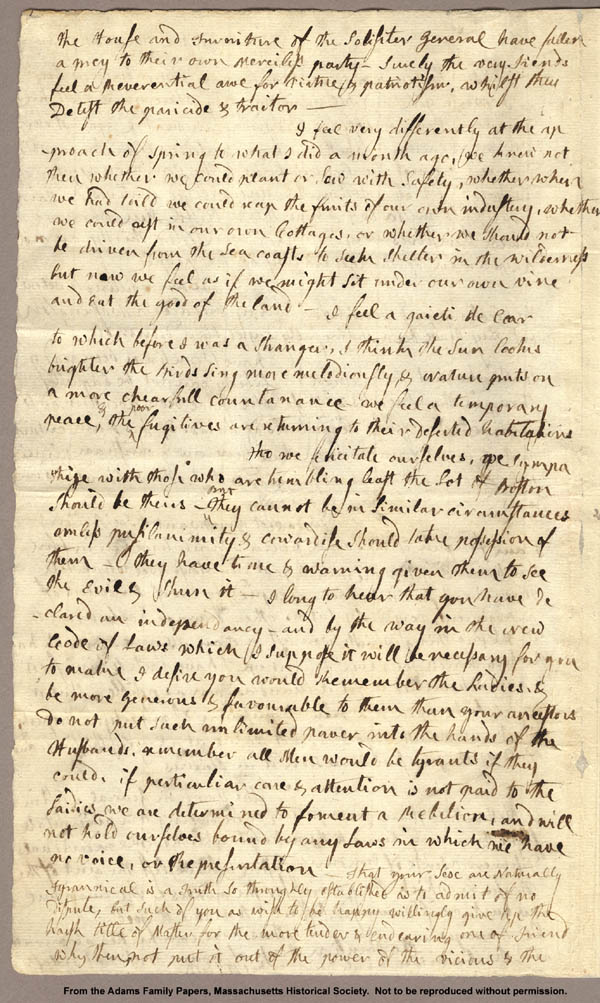 the House and furniture of the Soliciter General have fallen
a prey to their own merciless party — Surely the very Fiends
feel a Reverential awe for virtue & patriotism, whilst they
Detest the paricide & traitor —
I feel very differently at the ap
-proach of spring to what I did a month ago, we knew not
then whether we could plant or sow with safety, whether when
we had toild we could reap the fruits of our own industery, whether
we could rest in our own Cottages, or whether we should not
be driven from the sea coasts to seek shelter in the wilderness
but now we feel as if we might sit under our own vine
and eat the good of the land — I feel a gaieti de Coar
to which before I was a stranger, I think the Sun looks
brighter the Birds sing more melodiously, & nature puts on
a more chearfull countanance we feel a temporary
peace, & the poor fugitives are returning to their deserted habitations
Tho we felicitate ourselves, we sympa
thize with those who are trembling least the Lot of Boston
should be theirs — But they cannot be in similar circumstances
unless pusilanimity & cowardise should take possession of
them — they have time & warning given them to see
the Evil & shun it — I long to hear that you have de
-clared an independancy — and by the way in the new
Code of Laws which I suppose it will be necessary for you
to make I desire you would Remember the Ladies, &
be more generous & favourable to them than your ancestors
do not put such unlimited power into the hands of the
Husbands. remember all Men would be tyrants if they
could. if perticuliar care & attention is not paid to the
Laidies we are determined to foment a Rebelion, and will
not hold ourselves bound by any Laws in which we have
no voice, or Representation — That your Sex are Naturally
Tyrannical is a Truth so throughly established as to admit of no
dispute, but such of you as wish to be happy willingly give up the
harsh title of Master for the more tender & endearing one of Friend
why then, not put it out of the power of the vicious & the
From the Adams Family Papers, Massachusetts Historical Society. Not to be reproduced without permission.